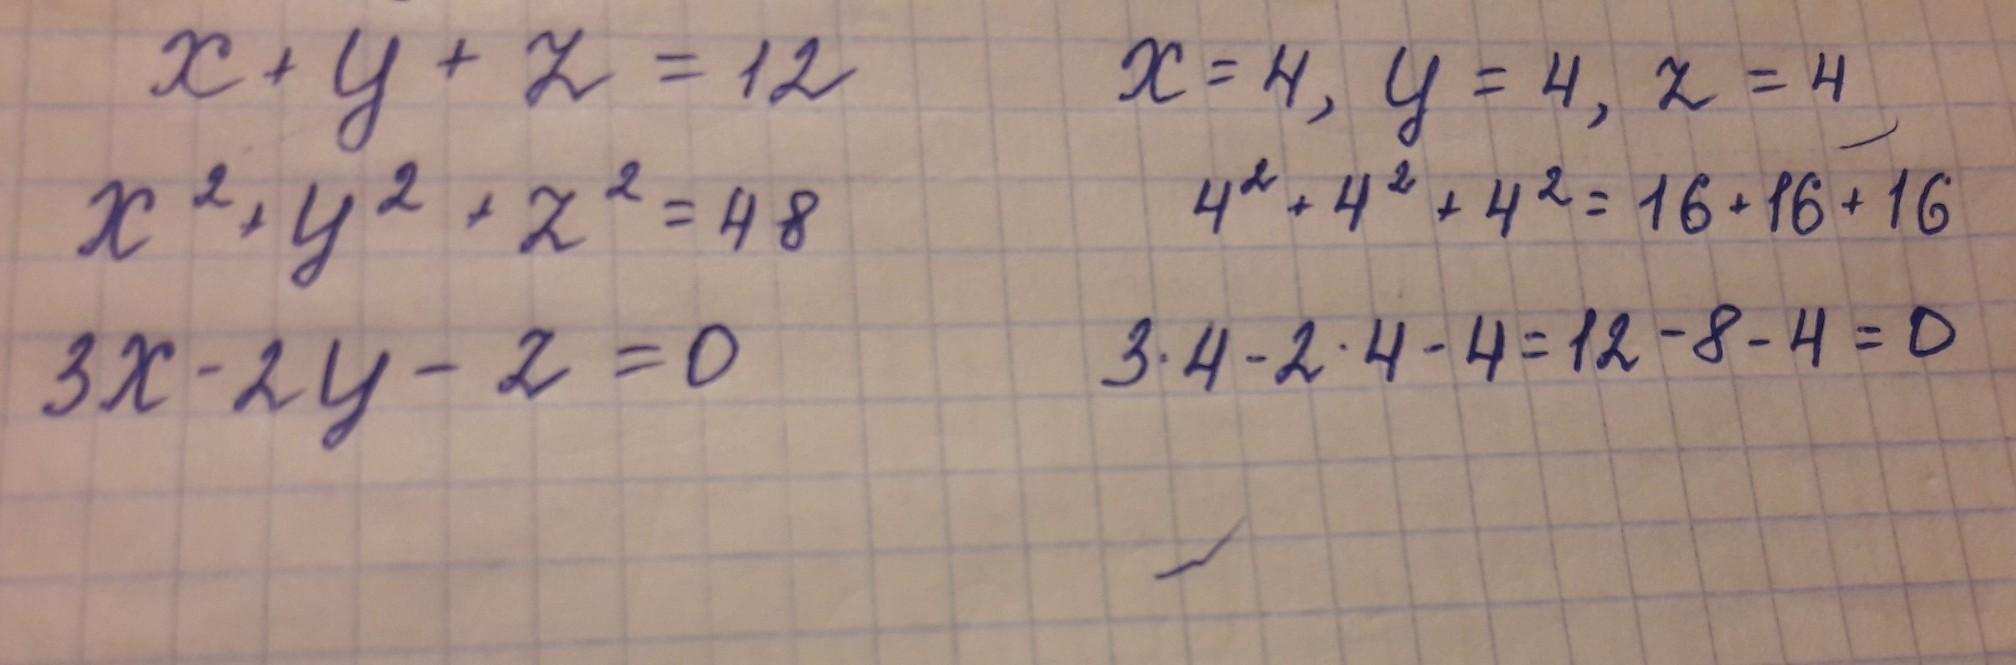 x + y + z = 12
x² + y² + z² = 48
3x - 2y - z = 0
x = 4, y = 4, z = 4
4² + 4² + 4² = 16 + 16 + 16
3 · 4 - 2 · 4 - 4 = 12 - 8 - 4 = 0